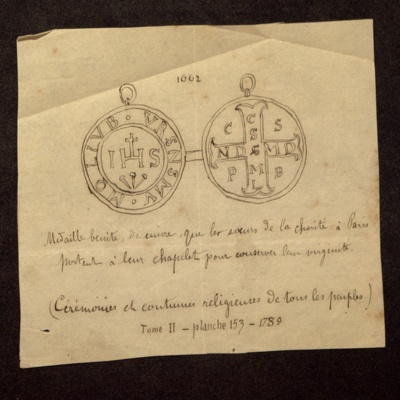 1662
MQLIVB · VRSNSMV
IHS
C S
C S S M L
N D S M D
P B
Médaille bénite, de cuivre, que les sœurs de la charité à Paris
portent à leur chapelet pour conserver leur virginité.
(Cérémonies et coutumes religieuses de tous les peuples)
Tome II – planche 153 – 1789